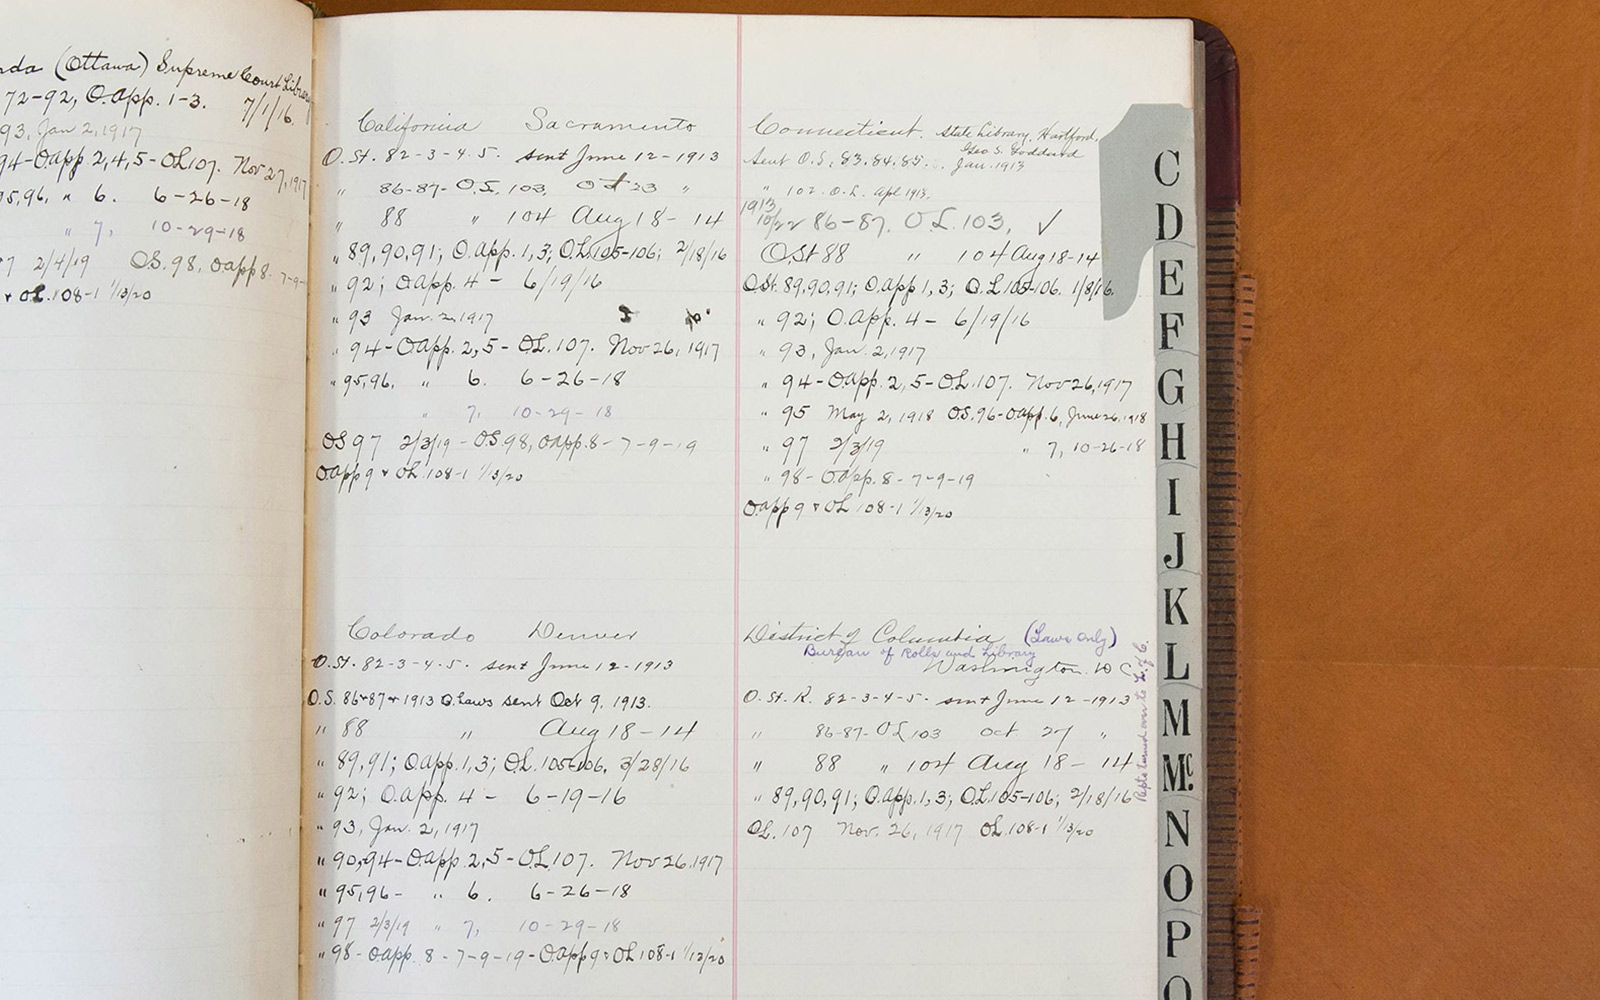 (Ottawa) Supreme Court Library
72-92, O.app. 1-3. 7/1/16.
93, Jan 2, 1917
94-Oapp 2,4,5-OL107. Nov 27, 1917
95,96, " 6. 6-26-18
" 7, 10-29-18
7 2/4/19 OS.98, Oapp 8. 7-9-
OL.108-1 1/13/20
California Sacramento
O.St. 82-3-4-5. sent June 12-1913
" 86-87-O.S. 103, 23 "
" 88 " 104 Aug 18-14
" 89,90,91; O.app. 1,3; O.L.105-106; 2/18/16
" 92; O.app. 4 - 6/19/16
" 93 Jan. 2, 1917
" 94-Oapp. 2,5-OL.107. Nov 26, 1917
" 95,96. " 6. 6-26-18
" 7, 10-29-18
OS 97 2/3/19 - O.S.98, Oapp.8 - 7-9-19
Oapp 9 + OL.108-1 1/13/20
Connecticut, State Library, Hartford,
Geo S. Goddard
Sent O.S. 83.84.85. Jan. 1913
" 102. O.L. Apl 1913.
1913
10/22 86-87. O.L.103, ✓
O.St 88 " 104 Aug 18-14
O.St. 89,90,91; O.app 1,3; O.L.105-106. 1/8/16.
" 92; O.app. 4 - 6/19/16
" 93, Jan. 2, 1917
" 94-Oapp. 2,5-OL.107. Nov 26, 1917
" 95 May 2, 1918 OS.96-Oapp.6, June 26, 1918
" 97 2/3/19 " 7, 10-26-18
" 98-O.app. 8-7-9-19
Oapp 9 + OL 108-1 1/13/20
Colorado Denver
O.St. 82-3-4-5. sent June 12-1913
O.S. 86+87+1913 O.Laws sent Oct 9, 1913.
" 88 " Aug 18-14
" 89,91; O.app.1,3; O.L.105-106, 3/28/16
" 92; O.app. 4 - 6-19-16
" 93, Jan. 2, 1917
" 90,94-Oapp. 2,5-OL.107. Nov 26.1917
" 95,96- " 6. 6-26-18
" 97 2/3/19 " 7, 10-29-18
" 98-Oapp. 8-7-9-19-Oapp 9+OL 108-1 1/13/20
District of Columbia (Laws Only)
Bureau of Rolls and Library
Washington. D C.
O.St. R. 82-3-4-5. sent June 12-1913
" 86-87-OL 103 Oct 27 "
" 88 " 104 Aug 18-14
" 89,90,91; O.app.1,3; O.L.105-106; 2/18/16
OL.107 Nov. 26, 1917 OL.108-1 1/13/20
Repts turned over to L. of C.
C
D
E
F
G
H
I
J
K
L
M
Mc.
N
O
P